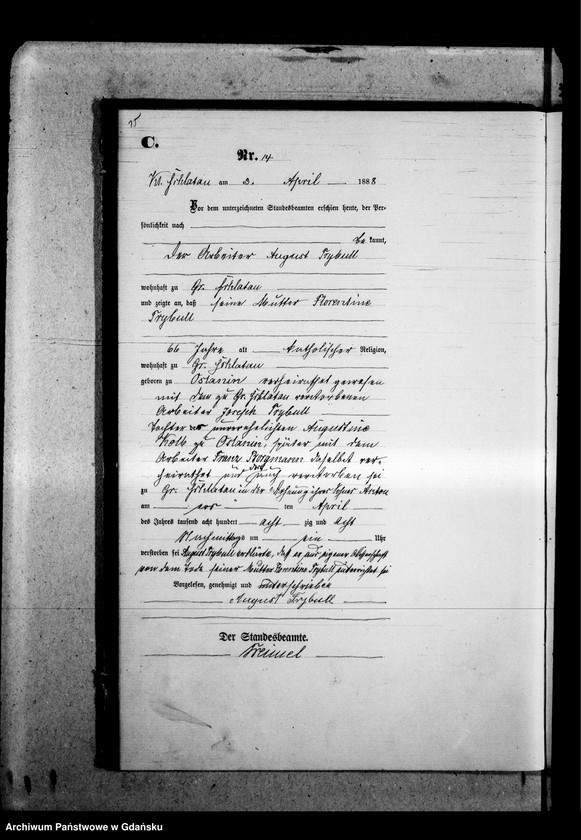 C.
Nr. 14
Kl. Schlatau am 3. April 1888
Vor dem unterzeichneten Standesbeamten erschien heute, der Per-
sönlichkeit nach
be kannt,
Der Arbeiter August Trybull
wohnhaft zu Gr. Schlatau
und zeigte an, daß seine Mutter Florentine
Trybull
66 Jahre alt Katholischer Religion,
wohnhaft zu Gr. Schlatau
geboren zu Oslanin verheirathet gewesen
mit dem zu Gr. Schlatau verstorbenen
Arbeiter Joseph Trybull
Tochter der unverehelichten Augustine
zu Oslanin, später mit dem
Arbeiter Franz daselbst ver-
heirathet und dort auch verstorben sei
zu Gr. Schlatau in der Wohnung ihres Sohnes Anton
am ten April
des Jahres tausend acht hundert acht zig und acht
Nachmittags um ein Uhr
verstorben sei August Trybull erklärte, daß er aus eigener Wissenschaft
von dem Tode seiner Mutter Florentine Trybull unterrichtet sei
Vorgelesen, genehmigt und unterschrieben
August Trybull
Der Standesbeamte.
Archiwum Państwowe w Gdańsku